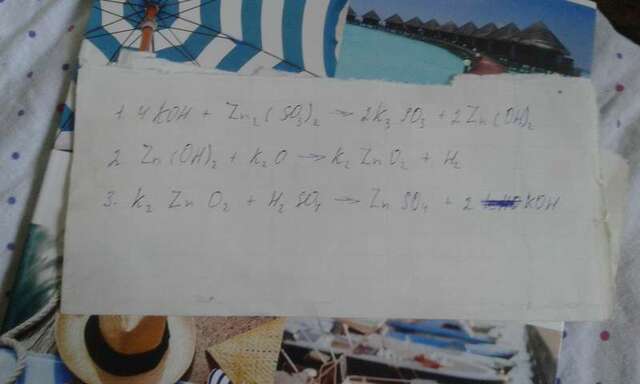 1 4KOH + Zn₂(SO₃)₂ → 2K₂SO₃ + 2Zn(OH)₂
2 Zn(OH)₂ + K₂O → K₂ZnO₂ + H₂
3. K₂ZnO₂ + H₂SO₄ → ZnSO₄ + 2 KOH